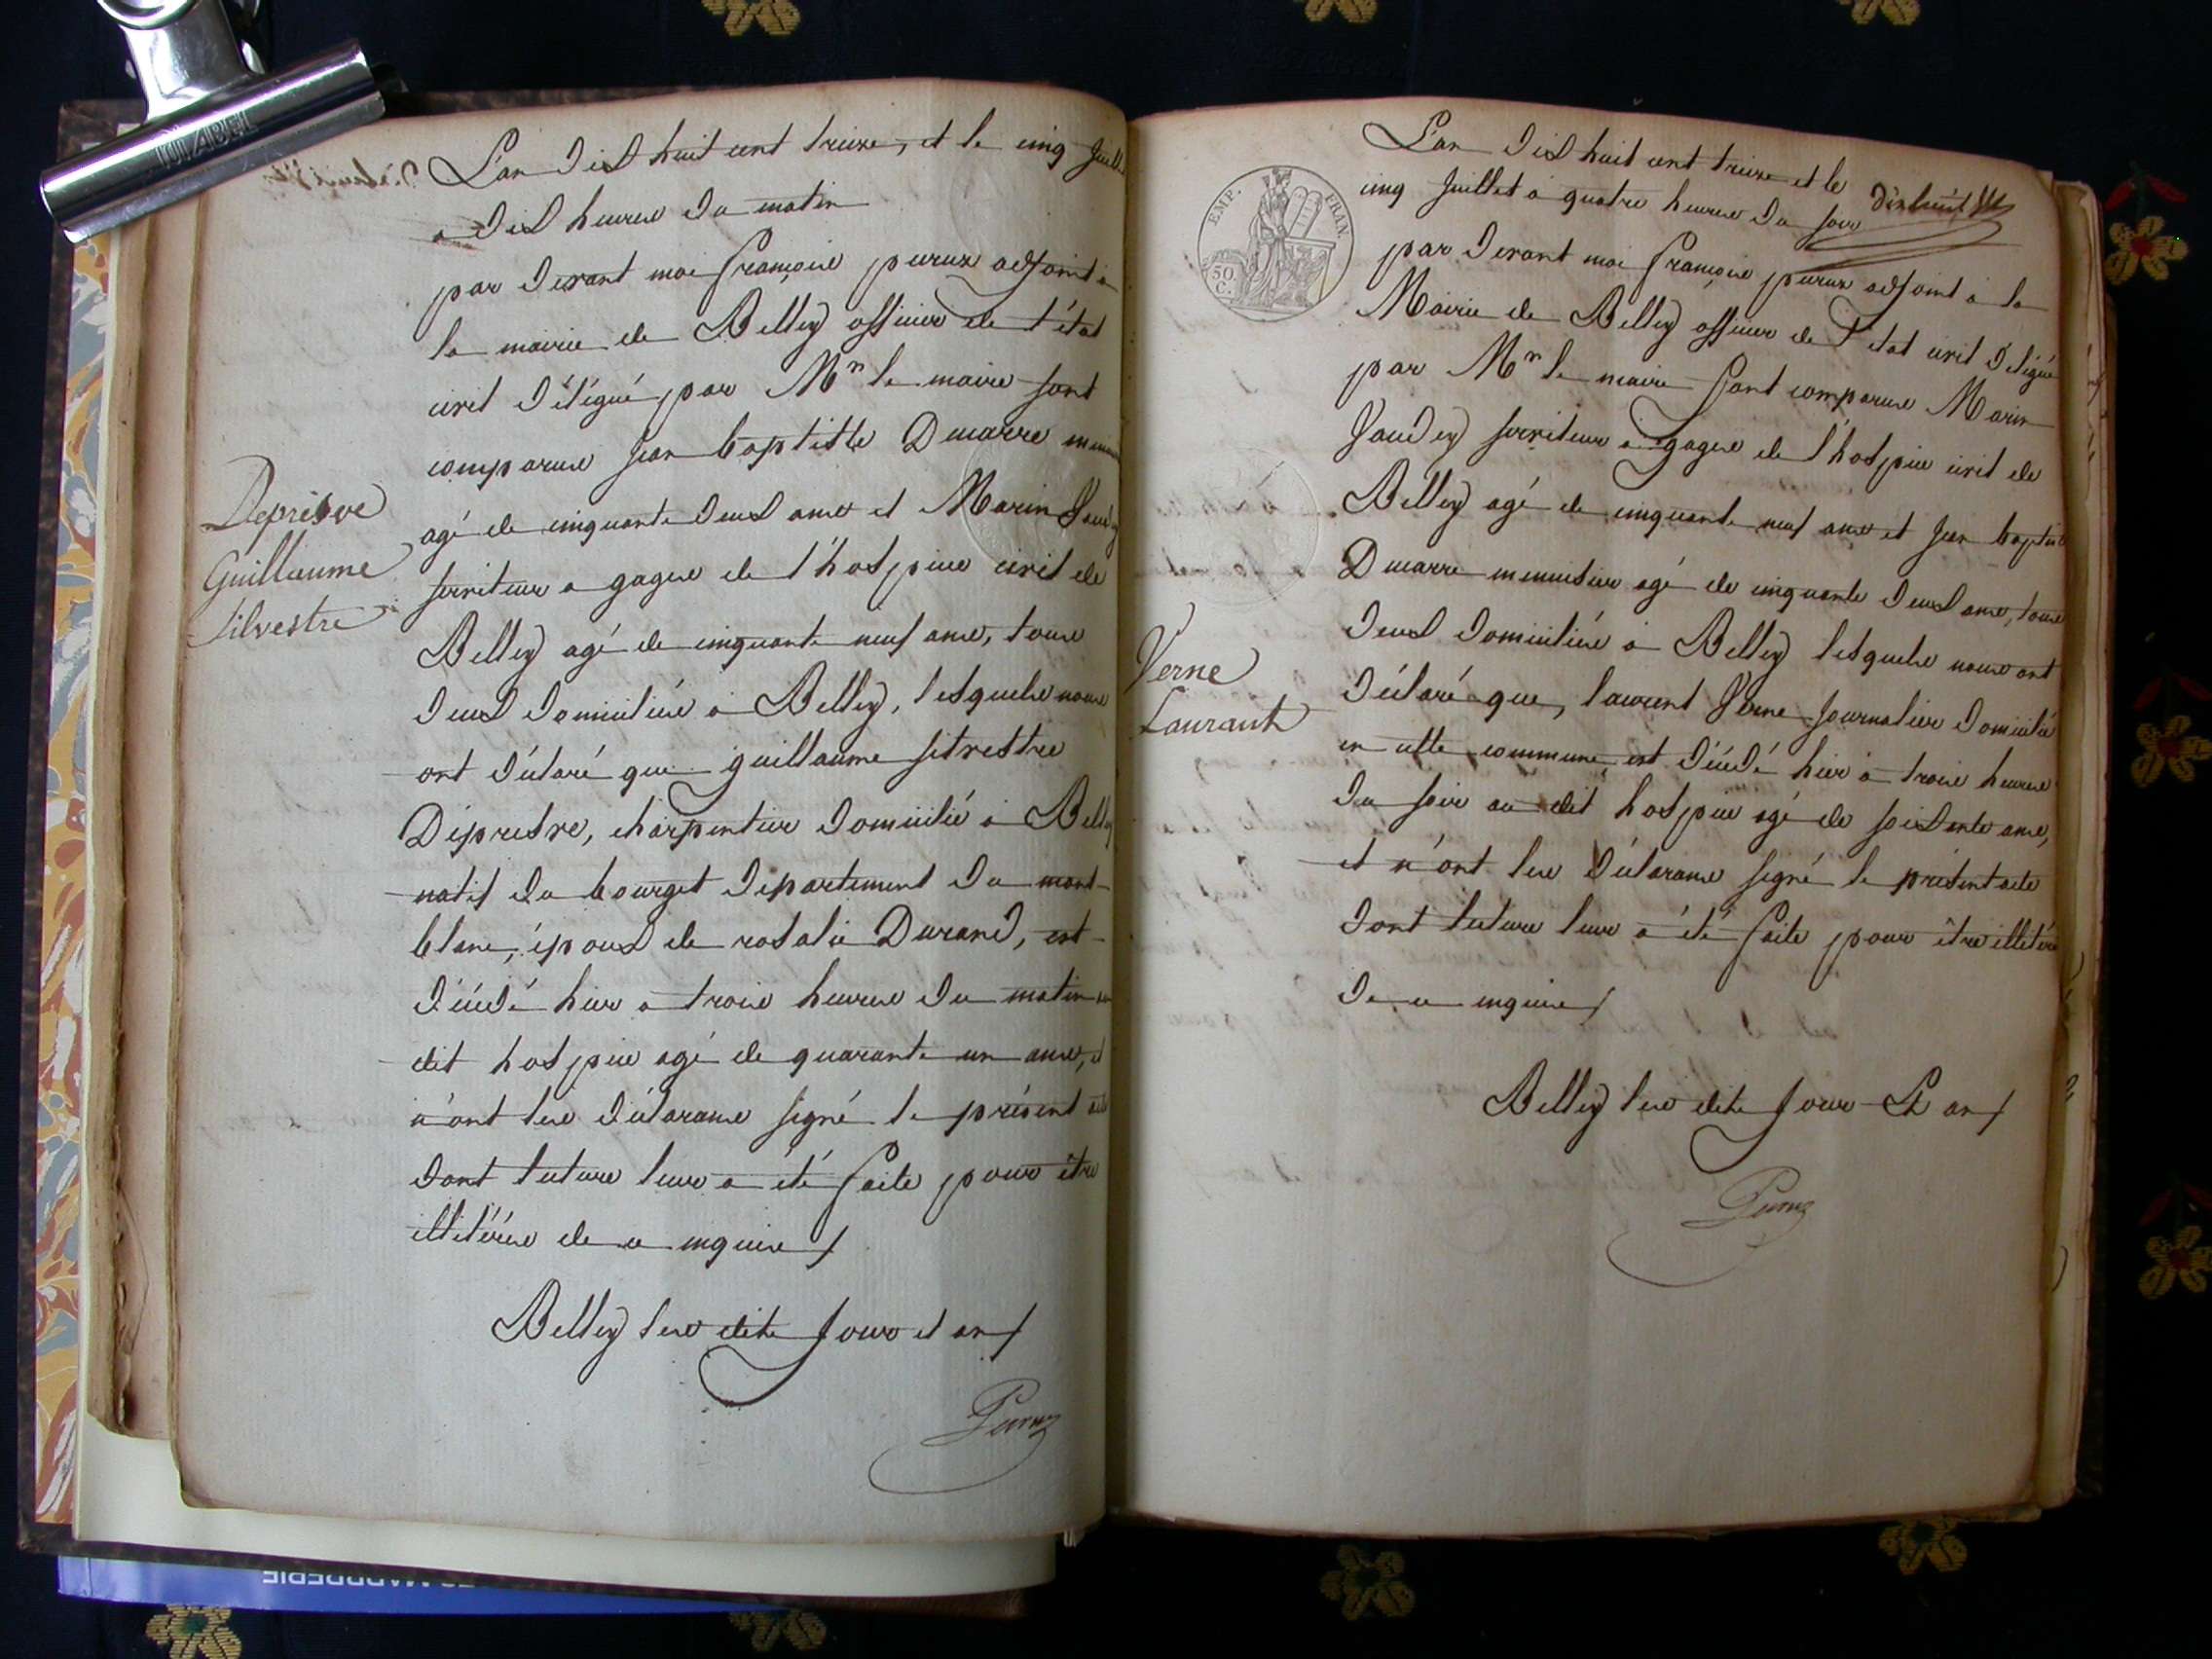 L'an dix huit cent treize, et le cinq Juillet
a dix heures du matin
par devant moi françois peruz adjoint à
la mairie de Belley officier de l'état
civil délégué par Mr le maire sont
comparus jean baptiste Ducarre menuisier
agé de cinquante deux ans et Marin Jaudey
serviteur a gages de l'hospice civil de
Belley agé de cinquante neuf ans, tous
deux domiciliés à Belley, lesquels nous
ont déclaré que guillaume silvestre
Déprestre, charpentier domicilié à Belley
natif du bourget département du mont-
blanc, époux de rosalie Durand, est
décédé hier a trois heures du matin au
dit hospice agé de quarante un ans, et
n'ont les déclarans signé le présent acte
dont lecture leur a été faite pour être
illitérés de ce enquis
Belley les dits Jour et an
Peruz
Deprêtre
Guillaume
Silvestre
DIABEL
EMP. FRAN.
50 C.
dixhuit
L'an dix huit cent treize et le
cinq Juillet à quatre heures du soir
par devant moi françois peruz adjoint à la
Mairie de Belley officier de l'état civil délégué
par Mr le maire sont comparus Marin
Jaudey serviteur a gages de l'hospice civil de
Belley agé de cinquante neuf ans et jean baptiste
Ducarre menuisier agé de cinquante deux ans, tous
deux domiciliés à Belley lesquels nous ont
déclaré que, laurent Verne journalier domicilié
en cette commune, est décédé hier à trois heures
du soir au dit hospice agé de soixante ans,
et n'ont les déclarans signé le présent acte
dont lecture leur a été faite pour être illitérés
de ce enquis
Belley les dits Jour Et an
Peruz
Verne
Laurant